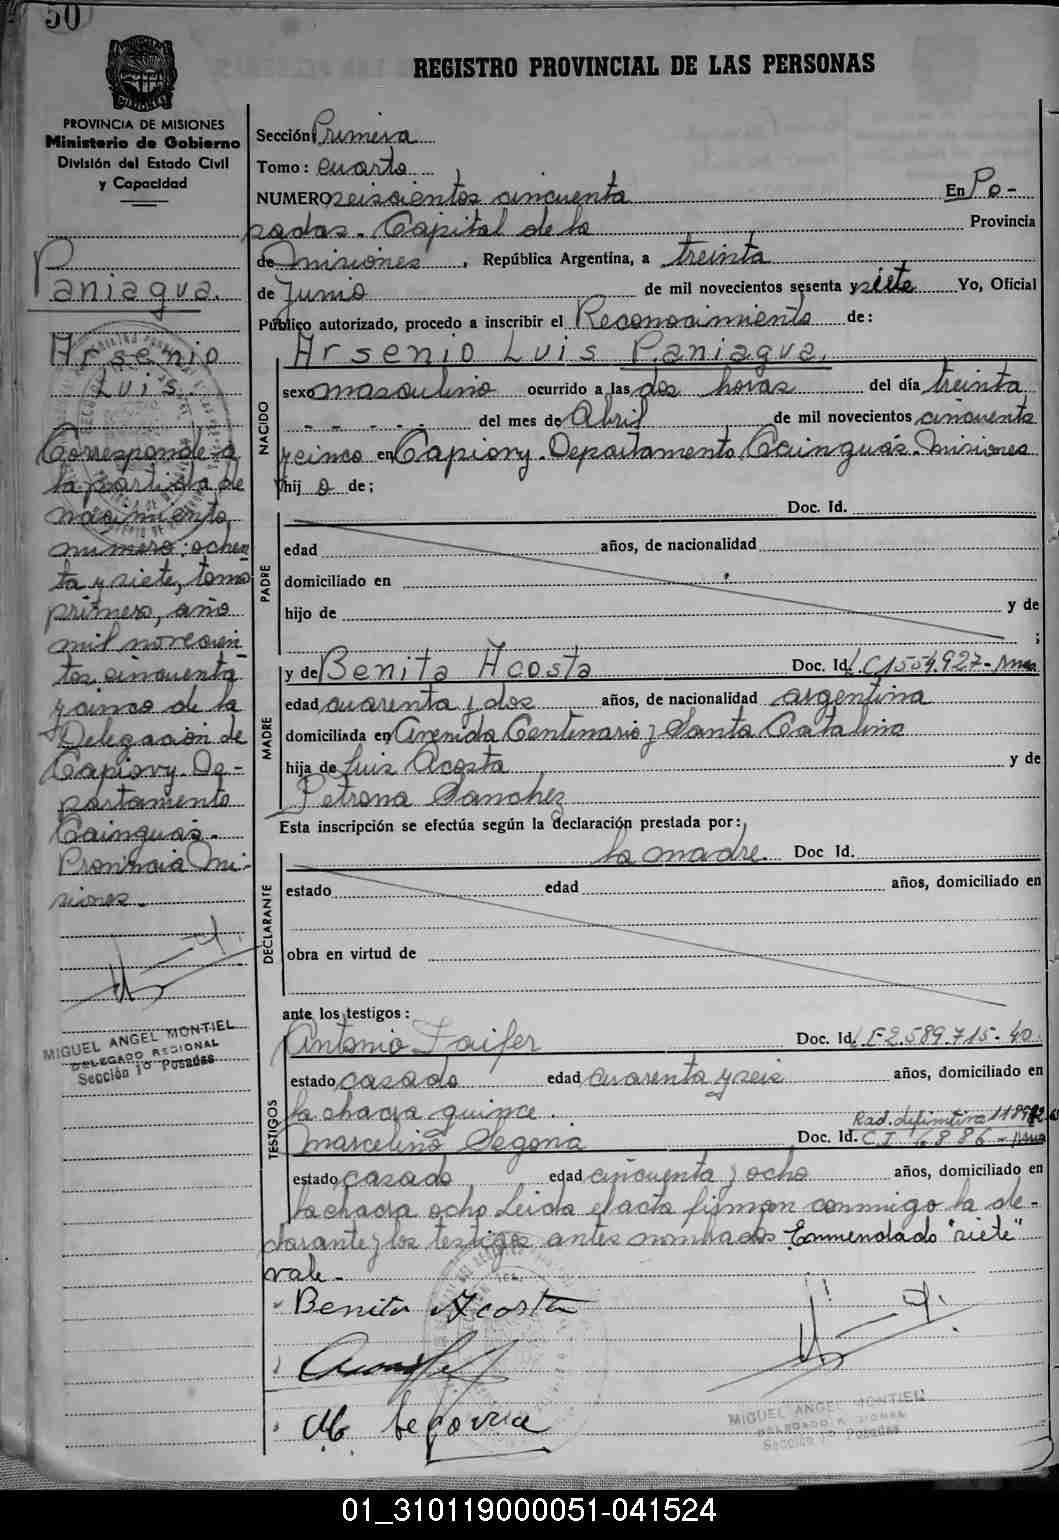 50
REGISTRO PROVINCIAL DE LAS PERSONAS
PROVINCIA DE MISIONES
Ministerio de Gobierno
División del Estado Civil
y Capacidad
Paniagua.
Arsenio
Luis.
Corresponde a
la partida de
nacimiento
numero: ochen
ta y siete, tomo
primero, año
mil novecien
tos cincuenta
y cinco de la
Delegación de
Capiovy. De-
partamento
Cainguás.
Provincia Mi-
siones.
MIGUEL ANGEL MONTIEL
DELEGADO REGIONAL
Sección 1º Posadas
Sección Primera
Tomo: cuarto
NUMERO seiscientos cincuenta En Po-
sadas. Capital de la Provincia
de Misiones, República Argentina, a treinta
de Junio de mil novecientos sesenta y siete Yo, Oficial
Público autorizado, procedo a inscribir el Reconocimiento de:
Arsenio Luis Paniagua.
NACIDO
sexo masculino ocurrido a las dos horas del día treinta
- - - - - del mes de Abril de mil novecientos cincuenta
y cinco en Capiovy. Departamento Cainguás. Misiones
hij o de;
PADRE
Doc. Id.
edad años, de nacionalidad
domiciliado en
hijo de y de
;
MADRE
y de Benita Acosta Doc. Id. C1554.927-
edad cuarenta y dos años, de nacionalidad argentina
domiciliada en Avenida Centenario y Santa Catalina
hija de Luis Acosta y de
Petrona Sanchez
Esta inscripción se efectúa según la declaración prestada por:
DECLARANTE
la madre. Doc Id.
estado edad años, domiciliado en
obra en virtud de
ante los testigos:
TESTIGOS
Antonio Faifer Doc. Id. E2.589.715-40.
estado casado edad cuarenta y seis años, domiciliado en
la chacra quince.
Rad. definitiva
Marcelino Segovia Doc. Id. C.I.
estado casado edad cincuenta y ocho años, domiciliado en
la chacra ocho Leida el acta firman conmigo la de-
clarante y los testigos antes nombrados Enmendado "siete"
vale-
Benita Acosta
M. Segovia
MIGUEL ANGEL MONTIEL
DELEGADO REGIONAL
Sección 1º Posadas
01_310119000051-041524